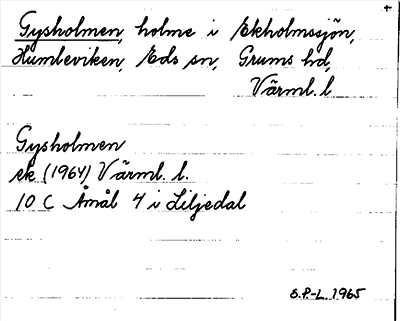 Gysholmen, holme i Ekholmssjön,
Humleviken, Eds sn, Grums hd,
Värml. l.
Gysholmen
ek (1964) Värml. l.
10 C Åmål 4 i Liljedal
S.P-L. 1965